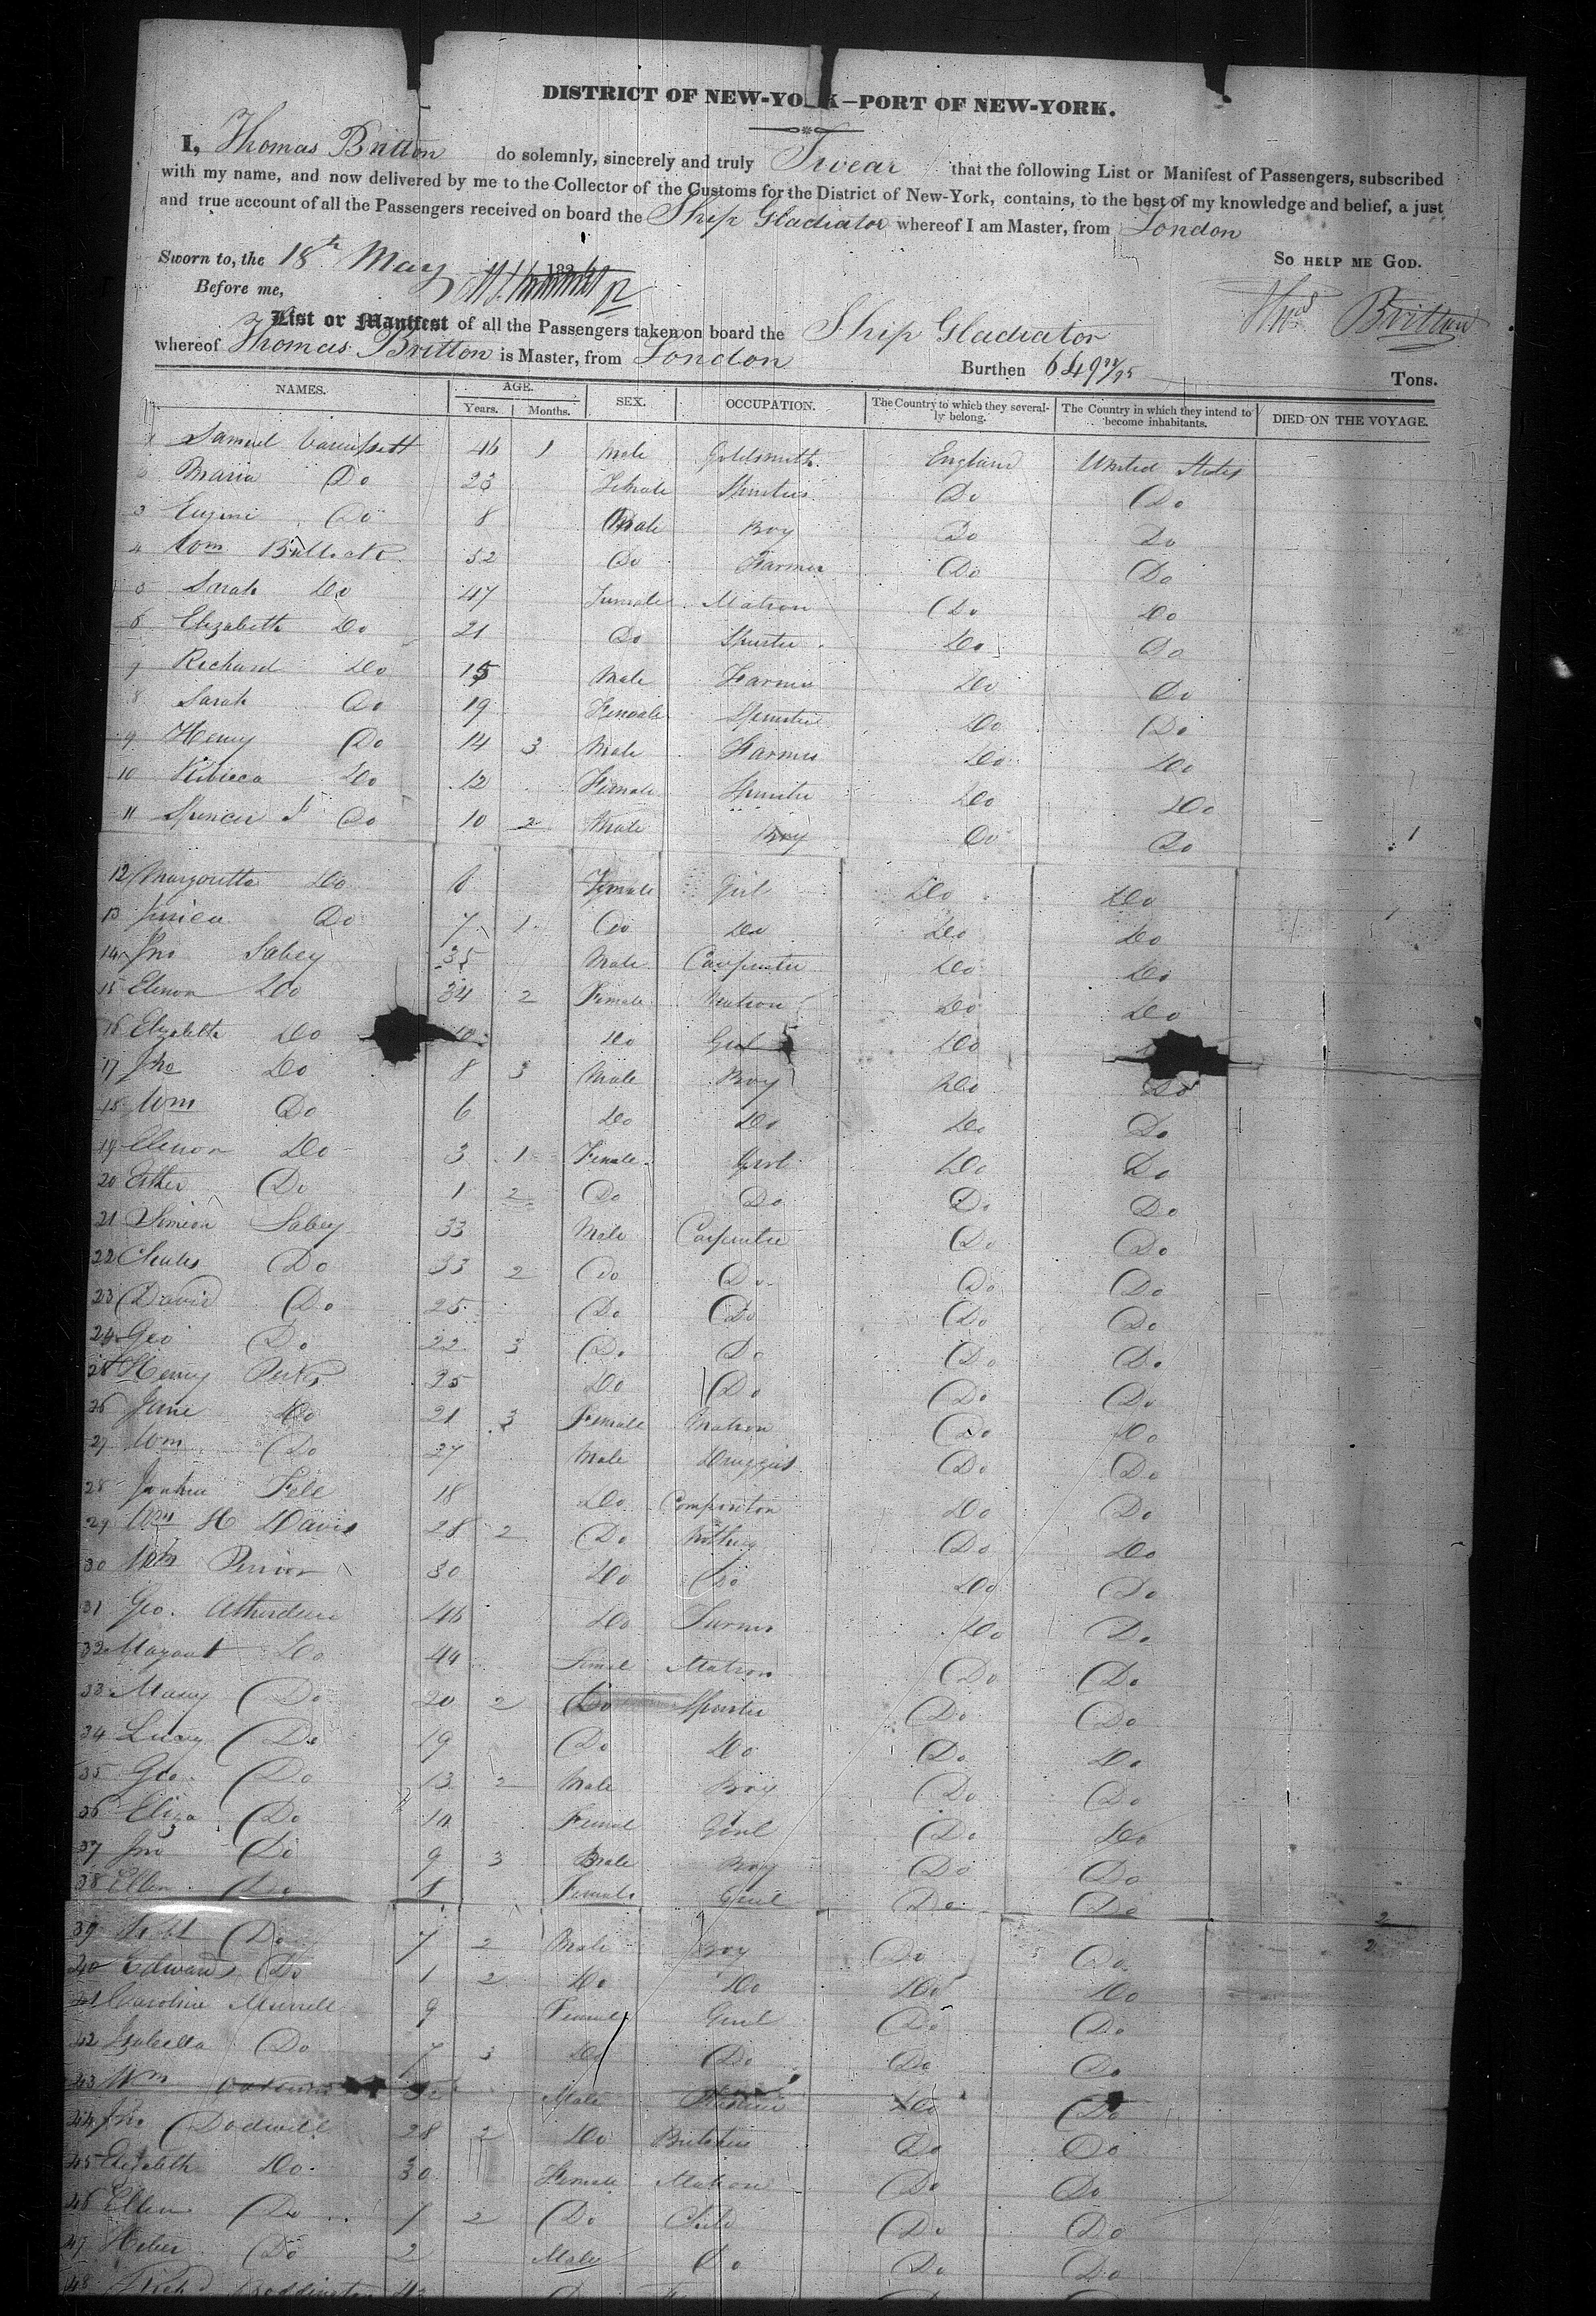 DISTRICT OF NEW-YORK—PORT OF NEW-YORK.
I, Thomas Britton do solemnly, sincerely and truly Swear that the following List or Manifest of Passengers, subscribed
with my name, and now delivered by me to the Collector of the Customs for the District of New-York, contains, to the best of my knowledge and belief, a just
and true account of all the Passengers received on board the Ship Gladiator whereof I am Master, from London
Sworn to, the 18th May 183 So HELP ME GOD.
Before me, Thos Britton
List or Manifest of all the Passengers taken on board the Ship Gladiator
whereof Thomas Britton is Master, from London Burthen 649 Tons.
NAMES. AGE. Years. Months. SEX. OCCUPATION. The Country to which they severally belong. The Country in which they intend to become inhabitants. DIED ON THE VOYAGE.
1 Samuel 46 1 Male Goldsmith England United States
2 Maria Do 23 Female Spinster Do Do
3 Eugene Do 8 Male Boy Do Do
4 Wm Bullock 52 Do Farmer Do Do
5 Sarah Do 47 Female Matron Do Do
6 Elizabeth Do 21 Do Spinster Do Do
7 Richard Do 15 Male Farmer Do Do
8 Sarah Do 19 Female Spinster Do Do
9 Henry Do 14 3 Male Farmer Do Do
10 Rebecca Do 12 Female Spinster Do Do
11 Spencer J Do 10 2 Male Boy Do Do 1
12 Margaretta Do 6 Female Girl Do Do
13 Do 7 1 Do Do Do Do
14 Jno Sabey 35 Male Carpenter Do Do
15 Elenor Do 34 2 Female Matron Do Do
16 Elizabeth Do 10 Do Girl Do
17 Jno Do 8 3 Male Boy Do Do
18 Wm Do 6 Do Do Do Do
19 Elenor Do 3 1 Female Girl Do Do
20 Esther Do 1 2 Do Do Do Do
21 Simeon Sabey 33 Male Carpenter Do Do
22 Charles Do 33 2 Do Do Do Do
23 David Do 25 Do Do Do Do
24 Geo Do 22 3 Do Do Do Do
25 Henry Perks 25 Do Do Do Do
26 Jane Do 21 3 Female Matron Do Do
27 Wm Do 27 Male Druggist Do Do
28 Joshua Fell 18 Do Compositor Do Do
29 Wm H Davis 28 2 Do Nothing Do Do
30 Wm 30 Do Do Do Do
31 Geo. 46 Do Farmer Do Do
32 Margaret Do 44 Female Matron Do Do
33 Mary Do 20 2 Do Spinster Do Do
34 Lucy Do 19 Do Do Do Do
35 Geo. Do 13 2 Male Boy Do Do
36 Eliza Do 10 Female Girl Do Do
37 Jno Do 9 3 Male Boy Do Do
38 Ellen Do 8 Female Girl Do Do 2
39 Do 7 2 Male Boy Do Do 2
40 Edward Do 1 2 Do Do Do Do
41 Caroline Murrell 9 Female Girl Do Do
42 Isabella Do 7 3 Do Do Do Do
43 Wm Male Do Do
44 Jno Dodwell 28 2 Do Butcher Do Do
45 Elizabeth Do 30 Female Matron Do Do
46 Ellen Do 1 2 Do Child Do Do
47 Do 2 Male Do Do Do
48 Richd Boddington